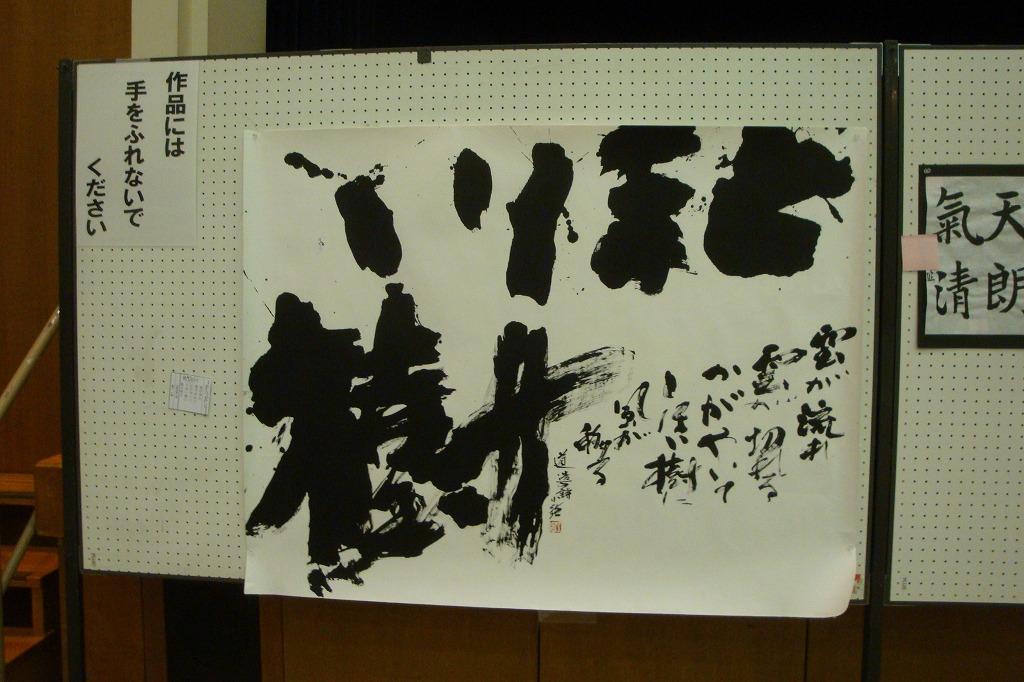 作品には
手をふれないで
ください
樹
雲が流れ
雲が切れる
かがやいて
とほい樹に
風が
移る
道造詩
天朗
氣清